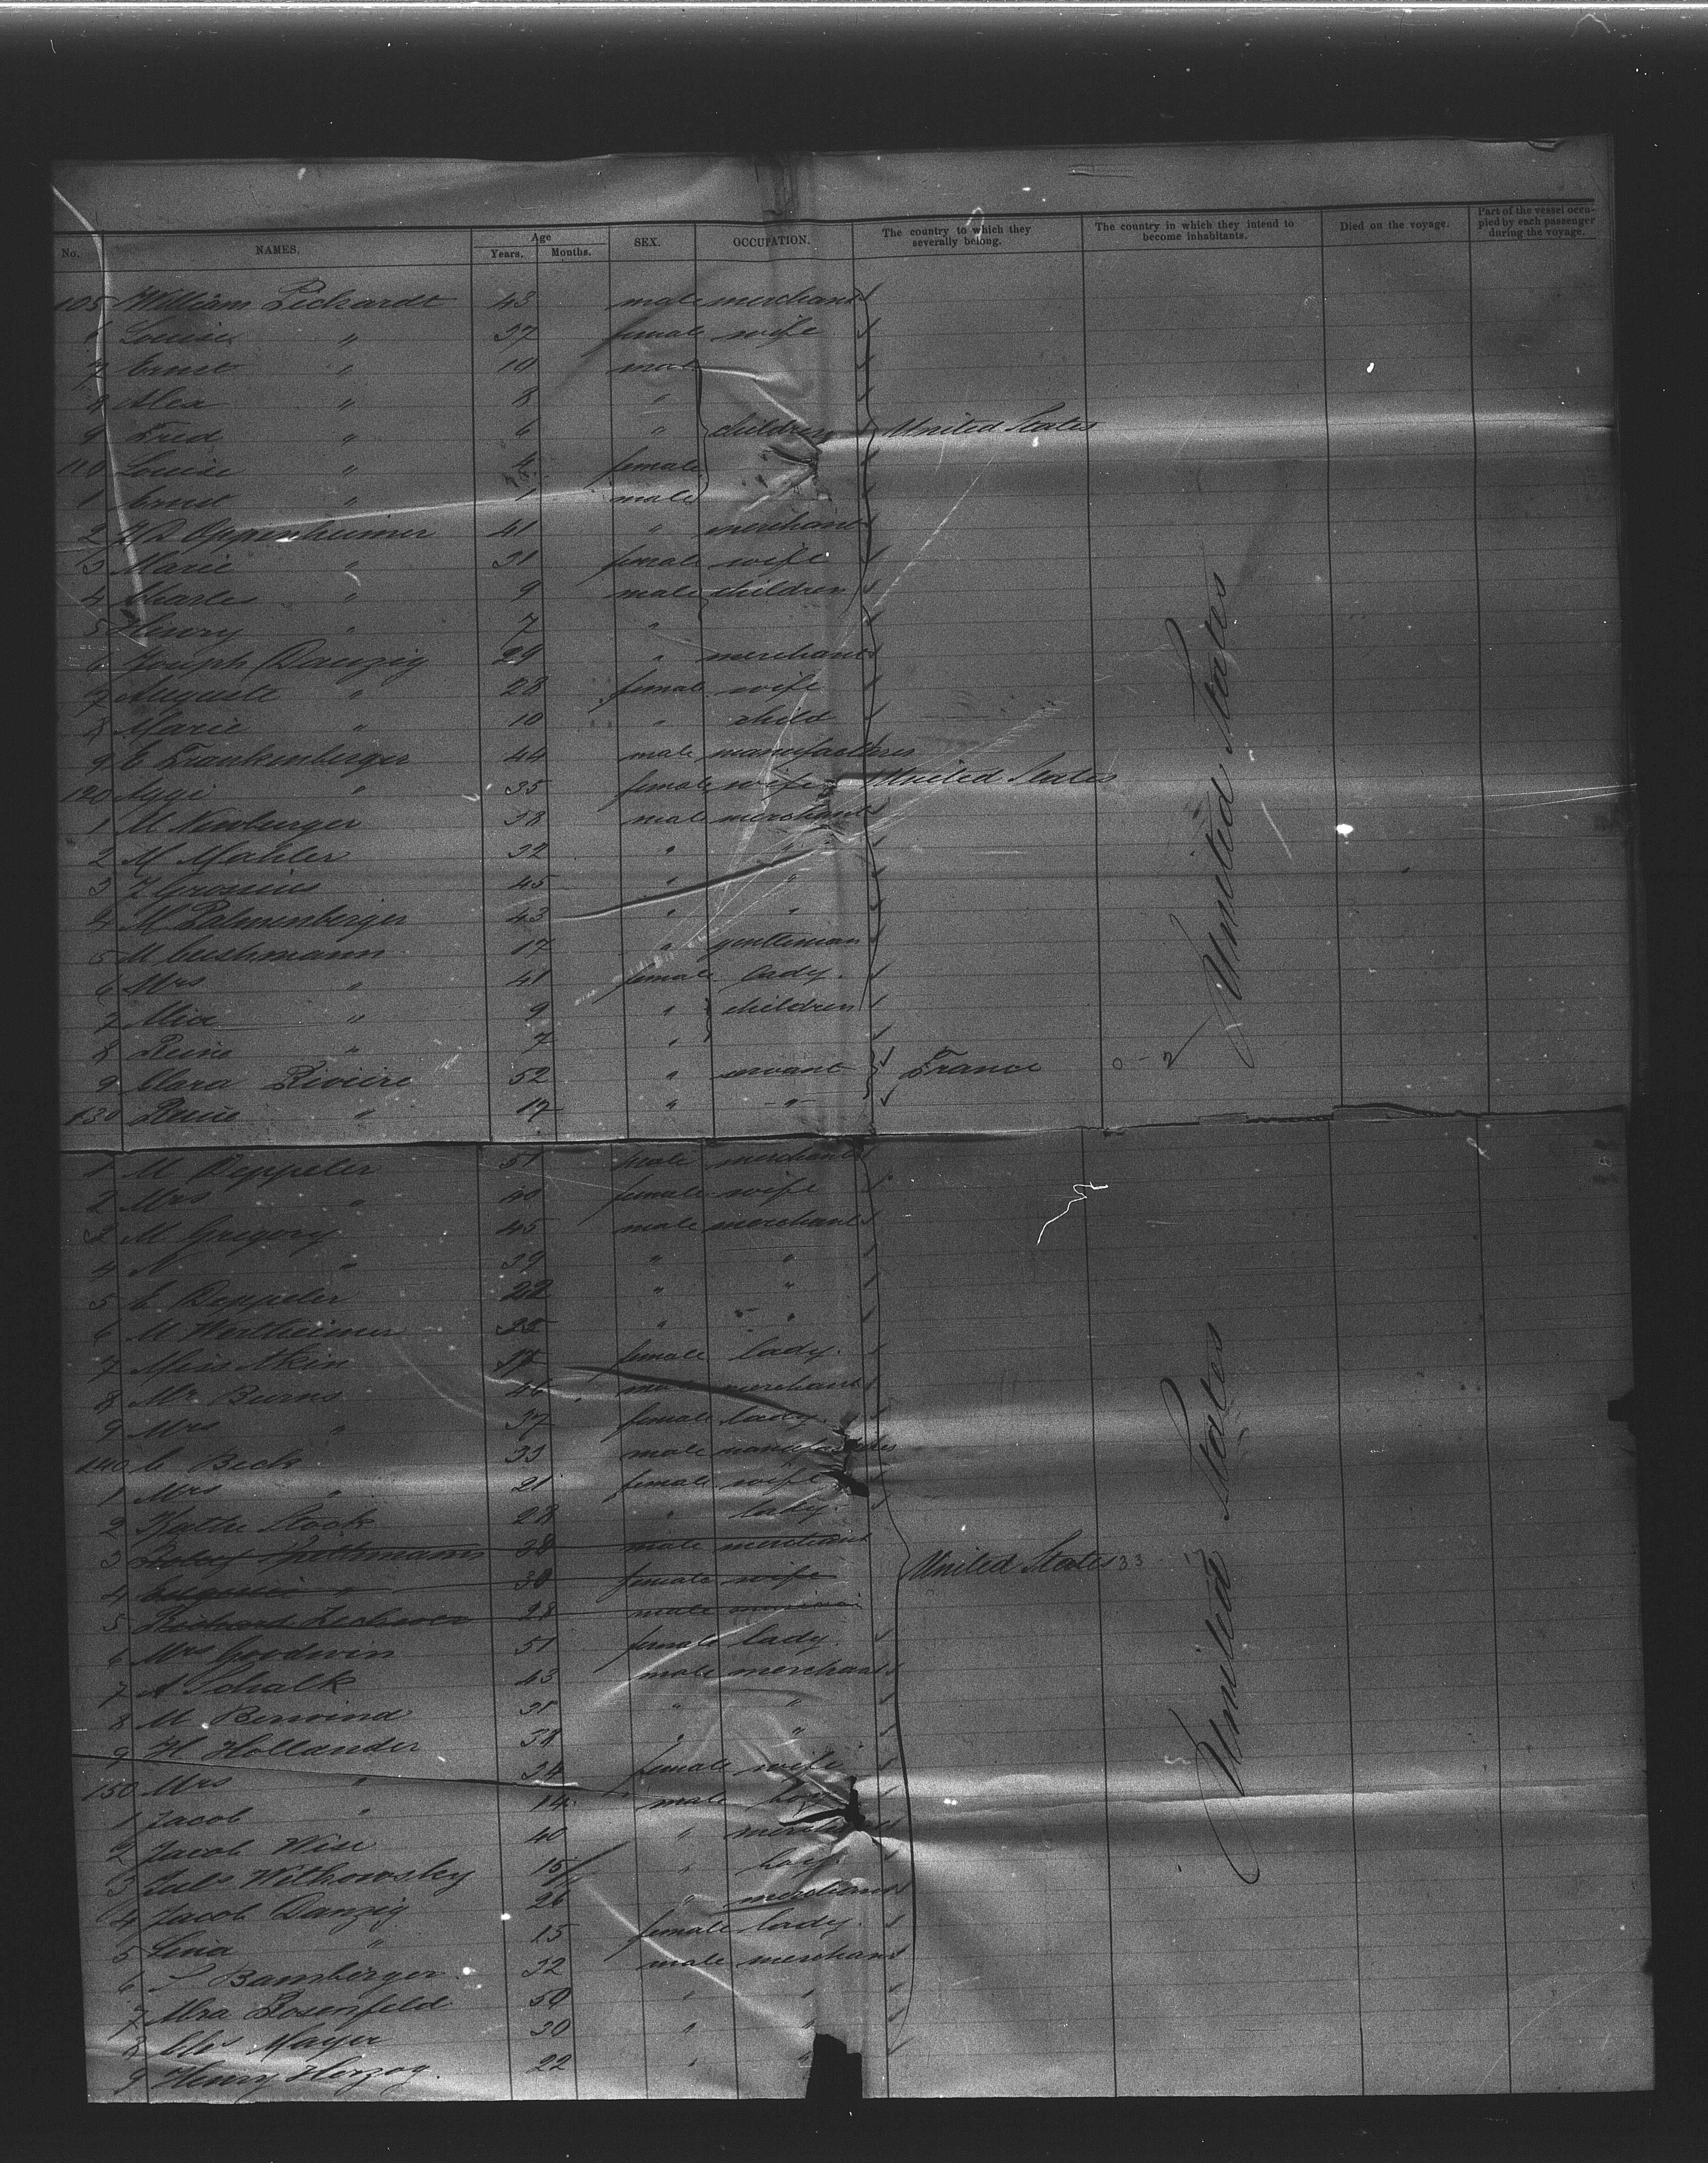 No. NAMES. Age Years. Months. SEX. OCCUPATION. The country to which they severally belong. The country in which they intend to become inhabitants. Died on the voyage. Part of the vessel occupied by each passenger during the voyage.
105 William Pickardt 43 male merchant
6 Louise " 37 female wife
7 Ernst " 10 male
8 Alex " 8 "
9 Fred " 6 " children United States
110 Louise " 4 female
1 Ernst " 1 male
2 Oppenheimer 41 " merchant
3 Marie " 31 female wife
4 Charles " 9 male children
5 Henry " 7 "
6 Joseph Danzig 29 " merchant
7 Auguste " 28 female wife
8 Marie " 10 " child
9 E Frankenberger 44 male manufacturer
120 " 35 female wife United States
1 M Newburger 38 male merchant
2 M Mahler 32 " "
3 45 " "
4 M Palmenberger 43 " "
5 M 17 " gentleman
6 Mrs " 41 female lady.
7 " 9 " children
8 Reine " 7 "
9 Clara Rivière 52 " servant France 0-2
130 Reine " 17 " "
United States
1 M Deppeler 51 male merchant
2 Mrs " 40 female wife
3 M Gregory 45 male merchant
4 " 39 " "
5 E Deppeler 22 " "
6 M Wertheimer 25 " "
7 Miss Akin female lady.
8 Mr. Burns 46 male merchant
9 Mrs " 37 female lady.
140 C Beck 33 male manufacturer
1 Mrs " 21 female wife
2 Kathe Stock 28 " lady.
3 38 male merchant
4 Eugenie " 30 female wife United States 33
5 Richard 28 male
6 Mrs Goodwin 51 female lady.
7 A Schalk 43 male merchant
8 M Berwind 31 " "
9 H Hollander 38 " "
150 Mrs " 34 female wife
1 Jacob " 14 male boy
2 Jacob Wise 40 " merchant
3 Withowsky 15 " boy.
4 Jacob Danzig 26 " merchant
5 Lina " 15 female lady.
6 S Bamberger 32 male merchant
7 Rosenfeld 50 " "
8 Mayer 30 " "
9 Henry Herzog. 22 " "
United States